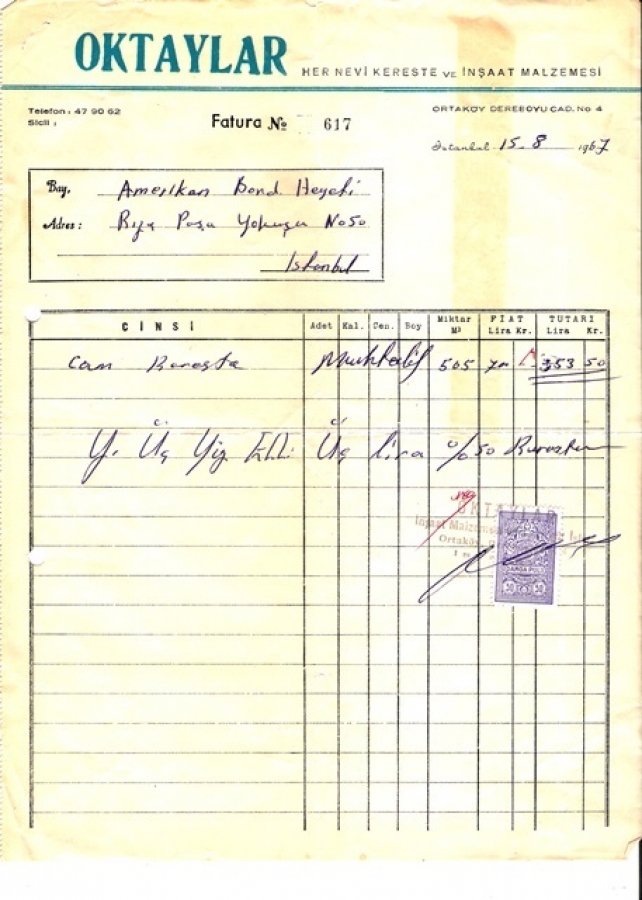 OKTAYLAR HER NEVİ KERESTE VE İNŞAAT MALZEMESİ
Telefon : 47 90 62
Sicil :
ORTAKÖY DEREBOYU CAD. No 4
Fatura № 617
İstanbul 15-8 1967
Bay, Amerikan Bord Heyeti
Adres : Rıza Paşa Yokuşu No 50
İstanbul
CİNSİ Adet Kal. Gen. Boy Miktar M³ FİAT Lira Kr. TUTARI Lira Kr.
Çam Kereste Muhtelif 505 700 353 50
Y. Üç Yüz Elli Üç lira %50 Kuruştur
OKTAYLAR
İnşaat Malzemesi
Ortaköy
DAMGA PULU
50 50